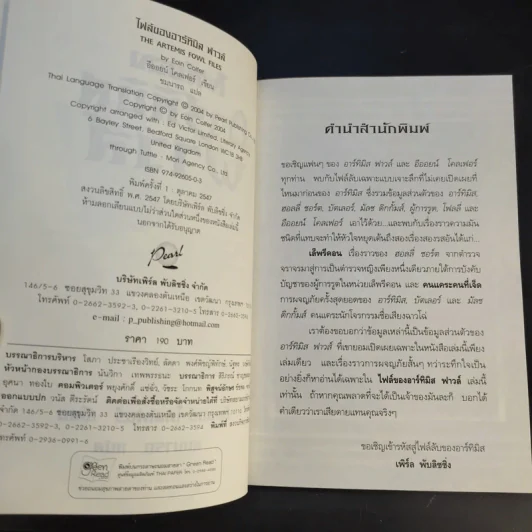 ไฟล์ของอาร์ทิมิส ฟาวล์
THE ARTEMIS FOWL FILES
by Eoin Colfer
อีออยน์ โคลเฟอร์ เขียน
แปล
Thai Language Translation Copyright © 2004 by Pearl Publishing
Copyright © by Eoin Colfer 2004
Copyright arranged with : Ed Victor Limited, Literary Agency
6 Bayley Street, Bedford Square London WC1B 3HB
United Kingdom
through Tuttle - Mori Agency Co., Ltd.
ISBN 974-92605-0-3
พิมพ์ครั้งที่ 1 : ตุลาคม 2547
สงวนลิขสิทธิ์ พ.ศ. 2547 โดยบริษัทเพิร์ล พับลิชชิ่ง จำกัด
ห้ามลอกเลียนแบบไม่ว่าส่วนใดส่วนหนึ่งของหนังสือเล่มนี้
นอกจากได้รับอนุญาต
Pearl
บริษัทเพิร์ล พับลิชชิ่ง จำกัด
146/5-6 ซอยสุขุมวิท 33 แขวงคลองตันเหนือ เขตวัฒนา กรุงเทพฯ
โทรศัพท์ 0-2662-3592-3, 0-2261-3210-5 โทรสาร
e-mail : p_publishing@hotmail.com
ราคา 190 บาท
บรรณาธิการบริหาร โสภา
หัวหน้ากองบรรณาธิการ นันวิภา เทพพรรธนะ บรรณาธิการ
คอมพิวเตอร์ พิสูจน์อักษร
ออกแบบปก ติดต่อเพื่อสั่งซื้อหรือจัดจำหน่ายได้ที่
จำกัด 146/5-6 ซอยสุขุมวิท 33 แขวงคลองตันเหนือ เขตวัฒนา กรุงเทพฯ
โทรศัพท์ 0-2662-3592-3, 0-2261-3210-5 โทรสาร พิมพ์ที่
โทรศัพท์ 0-2936-0991-6
Green Read
คำนำสำนักพิมพ์
ขอเชิญแฟนๆ ของ อาร์ทิมิส ฟาวล์ และ อีออยน์ โคลเฟอร์
ทุกท่าน พบกับไฟล์ลับเฉพาะแบบเจาะลึกที่ไม่เคยเปิดเผยที่
ไหนมาก่อนของ อาร์ทิมิส ซึ่งรวมข้อมูลส่วนตัวของ อาร์ทิมิส,
ฮอลลี่ ชอร์ต, บัตเลอร์, มัลช ดิกกั้มส์, ผู้การรูต, โฟลลี่ และ
อีออยน์ โคลเฟอร์ เอาไว้ด้วย...และพบกับเรื่องราวความมัน
ชนิดที่แทบจะทำให้หัวใจหยุดเต้นถึงสองเรื่องสองรสอันได้แก่...
เล็พรีคอน เรื่องราวของ ฮอลลี่ ชอร์ต จากตำรวจ
จราจรมาสู่การเป็นตำรวจหญิงเพียงหนึ่งเดียวภายใต้การบังคับ
บัญชาของผู้การรูตในหน่วยเล็พรีคอน และ คนแคระคนที่เจ็ด
การผจญภัยครั้งสุดยอดของ อาร์ทิมิส, บัตเลอร์ และ มัลช
ดิกกั้มส์ คนแคระนักโจรกรรมชื่อเสียงฉาวโฉ่
เราต้องขอบอกว่าข้อมูลเหล่านี้เป็นข้อมูลส่วนตัวของ
อาร์ทิมิส ฟาวล์ ที่เขายอมเปิดเผยเฉพาะในหนังสือเล่มนี้เพียง
เล่มเดียว และเรื่องราวการผจญภัยสั้นๆ ทว่าระทึกใจเป็น
อย่างยิ่งก็หาอ่านได้เฉพาะใน ไฟล์ของอาร์ทิมิส ฟาวล์ เล่มนี้
เท่านั้น ถ้าหากคุณพลาดที่จะได้เป็นเจ้าของมันละก็ บอกได้
คำเดียวว่าเราเสียดายแทนคุณจริงๆ
ขอเชิญเข้ารหัสสู่ไฟล์ลับของอาร์ทิมิส
เพิร์ล พับลิชชิ่ง